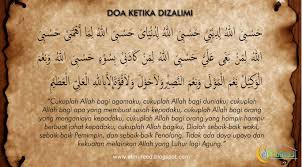 DOA KETIKA DIZALIMI
حَسْبِيَ اللهُ لِدِيْنِيْ حَسْبِيَ اللهُ لِدُنْيَايَ حَسْبِيَ اللهُ لِمَا أَهَمَّنِيْ حَسْبِيَ
اللهُ لِمَنْ بَغَى عَلَيَّ حَسْبِيَ اللهُ لِمَنْ كَادَنِيْ بِسُوْءٍ حَسْبِيَ اللهُ وَنِعْمَ
الْوَكِيْلُ نِعْمَ الْمَوْلَى وَنِعْمَ النَّصِيْرُ وَلَاحَوْلَ وَلَاقُوَّةَ إِلَّا بِاللهِ الْعَلِيِّ الْعَظِيْمِ
"Cukuplah Allah bagi agamaku, cukuplah Allah bagi duniaku, cukuplah
Allah bagi apa yang membuat susah hatiku, cukuplah Allah bagi orang
yang menganiaya kepadaku, cukuplah Allah bagi orang yang hampir-hampir
berbuat jahat kepadaku, cukuplah Allah bagiku, Dialah sebaik-baik wakil,
sebaik-baik Pemimpin, dan sebaik-baik Penolong. Tidak ada daya upaya dan
kekuatan melainkan Allah yang Luhur lagi Agung."